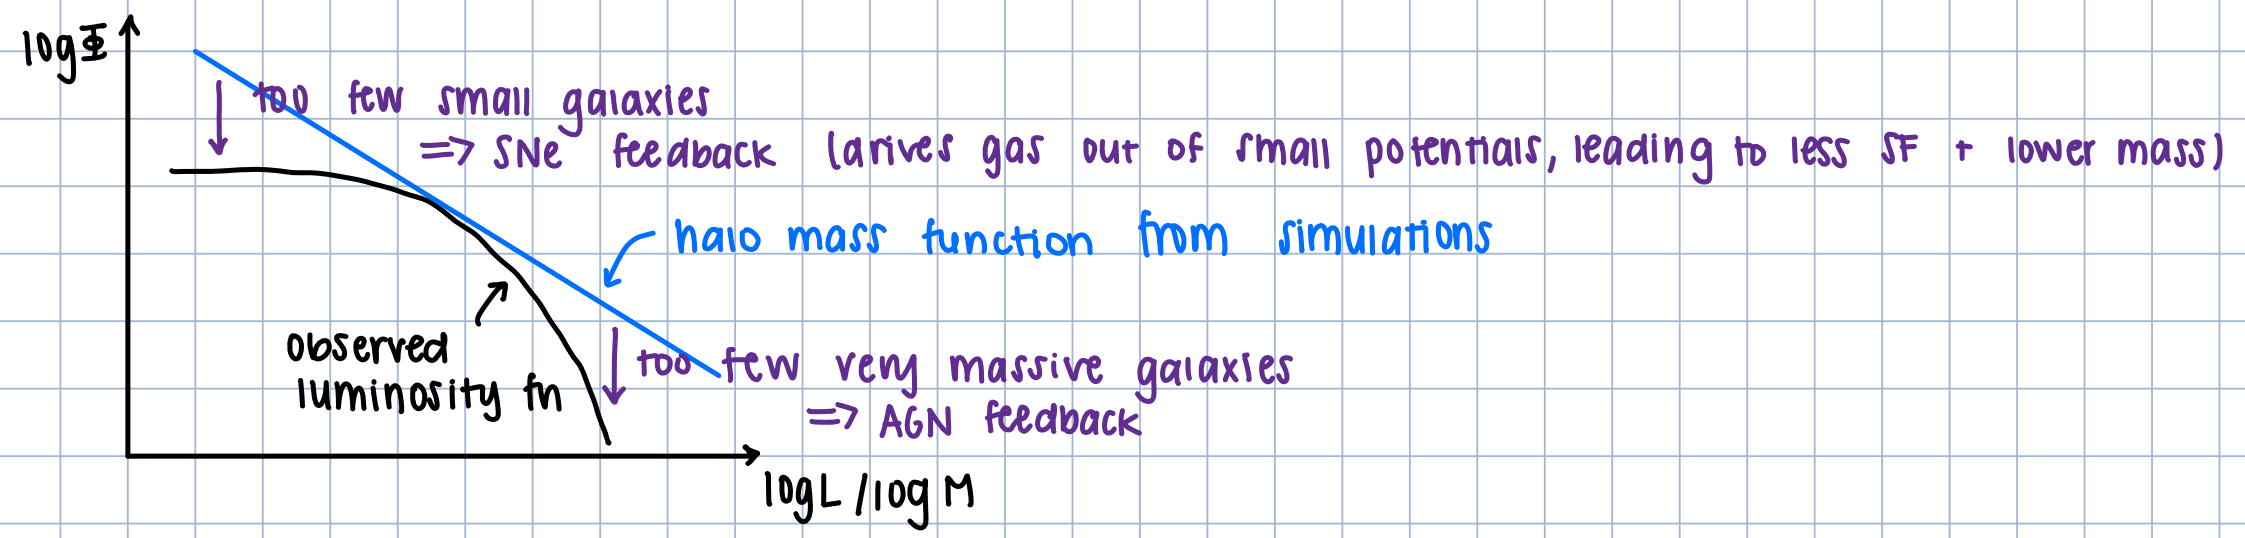 log Φ
too few small galaxies
=> SNe feedback (drives gas out of small potentials, leading to less SF + lower mass)
halo mass function from simulations
observed
luminosity fn
too few very massive galaxies
=> AGN feedback
log L / log M